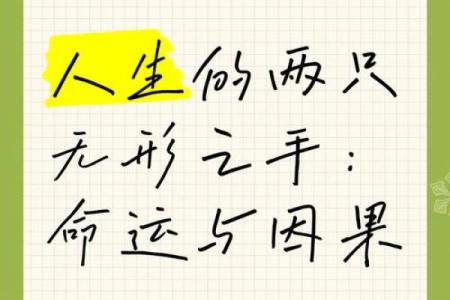 人生的两只
无形之手：
命运与因果